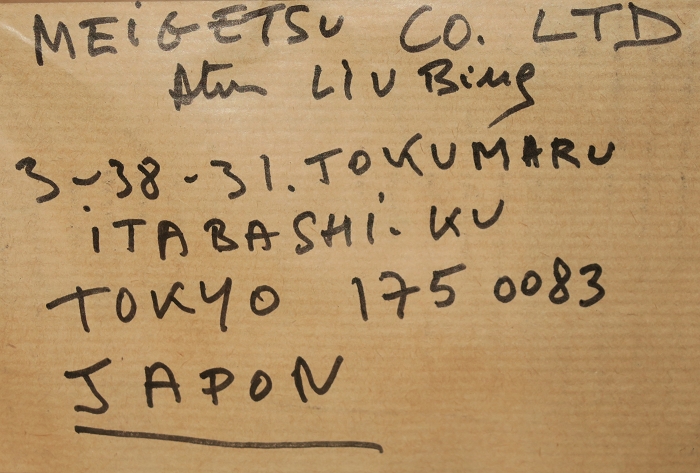 MEiGETSU CO. LTD
Attn LIU Bing
3-38-31. TOKUMARU
iTABASHi-KU
TOKYO 175 0083
JAPON